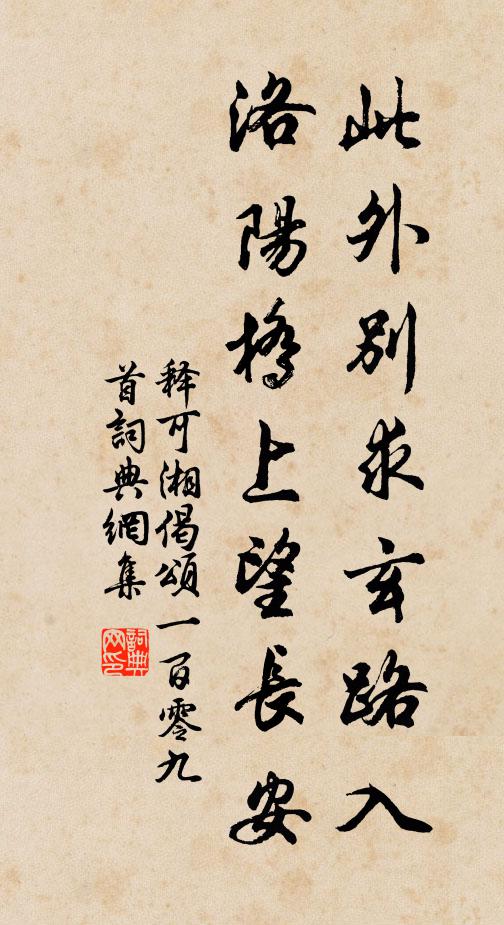 此外別求玄路入
洛陽橋上望長安
释可湘偈頌一百零九
首詞典網集
詞典
网印